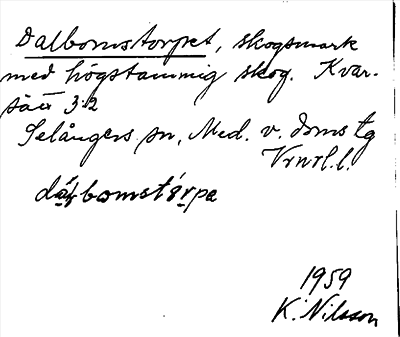 Dalbomstorpet, skogsmark
med högstammig skog. Kvar-
sätt 3:2
Selångers sn, Med. v. doms tg
Vrnrl.l.
dálbomstórpa
1959
K. Nilsson